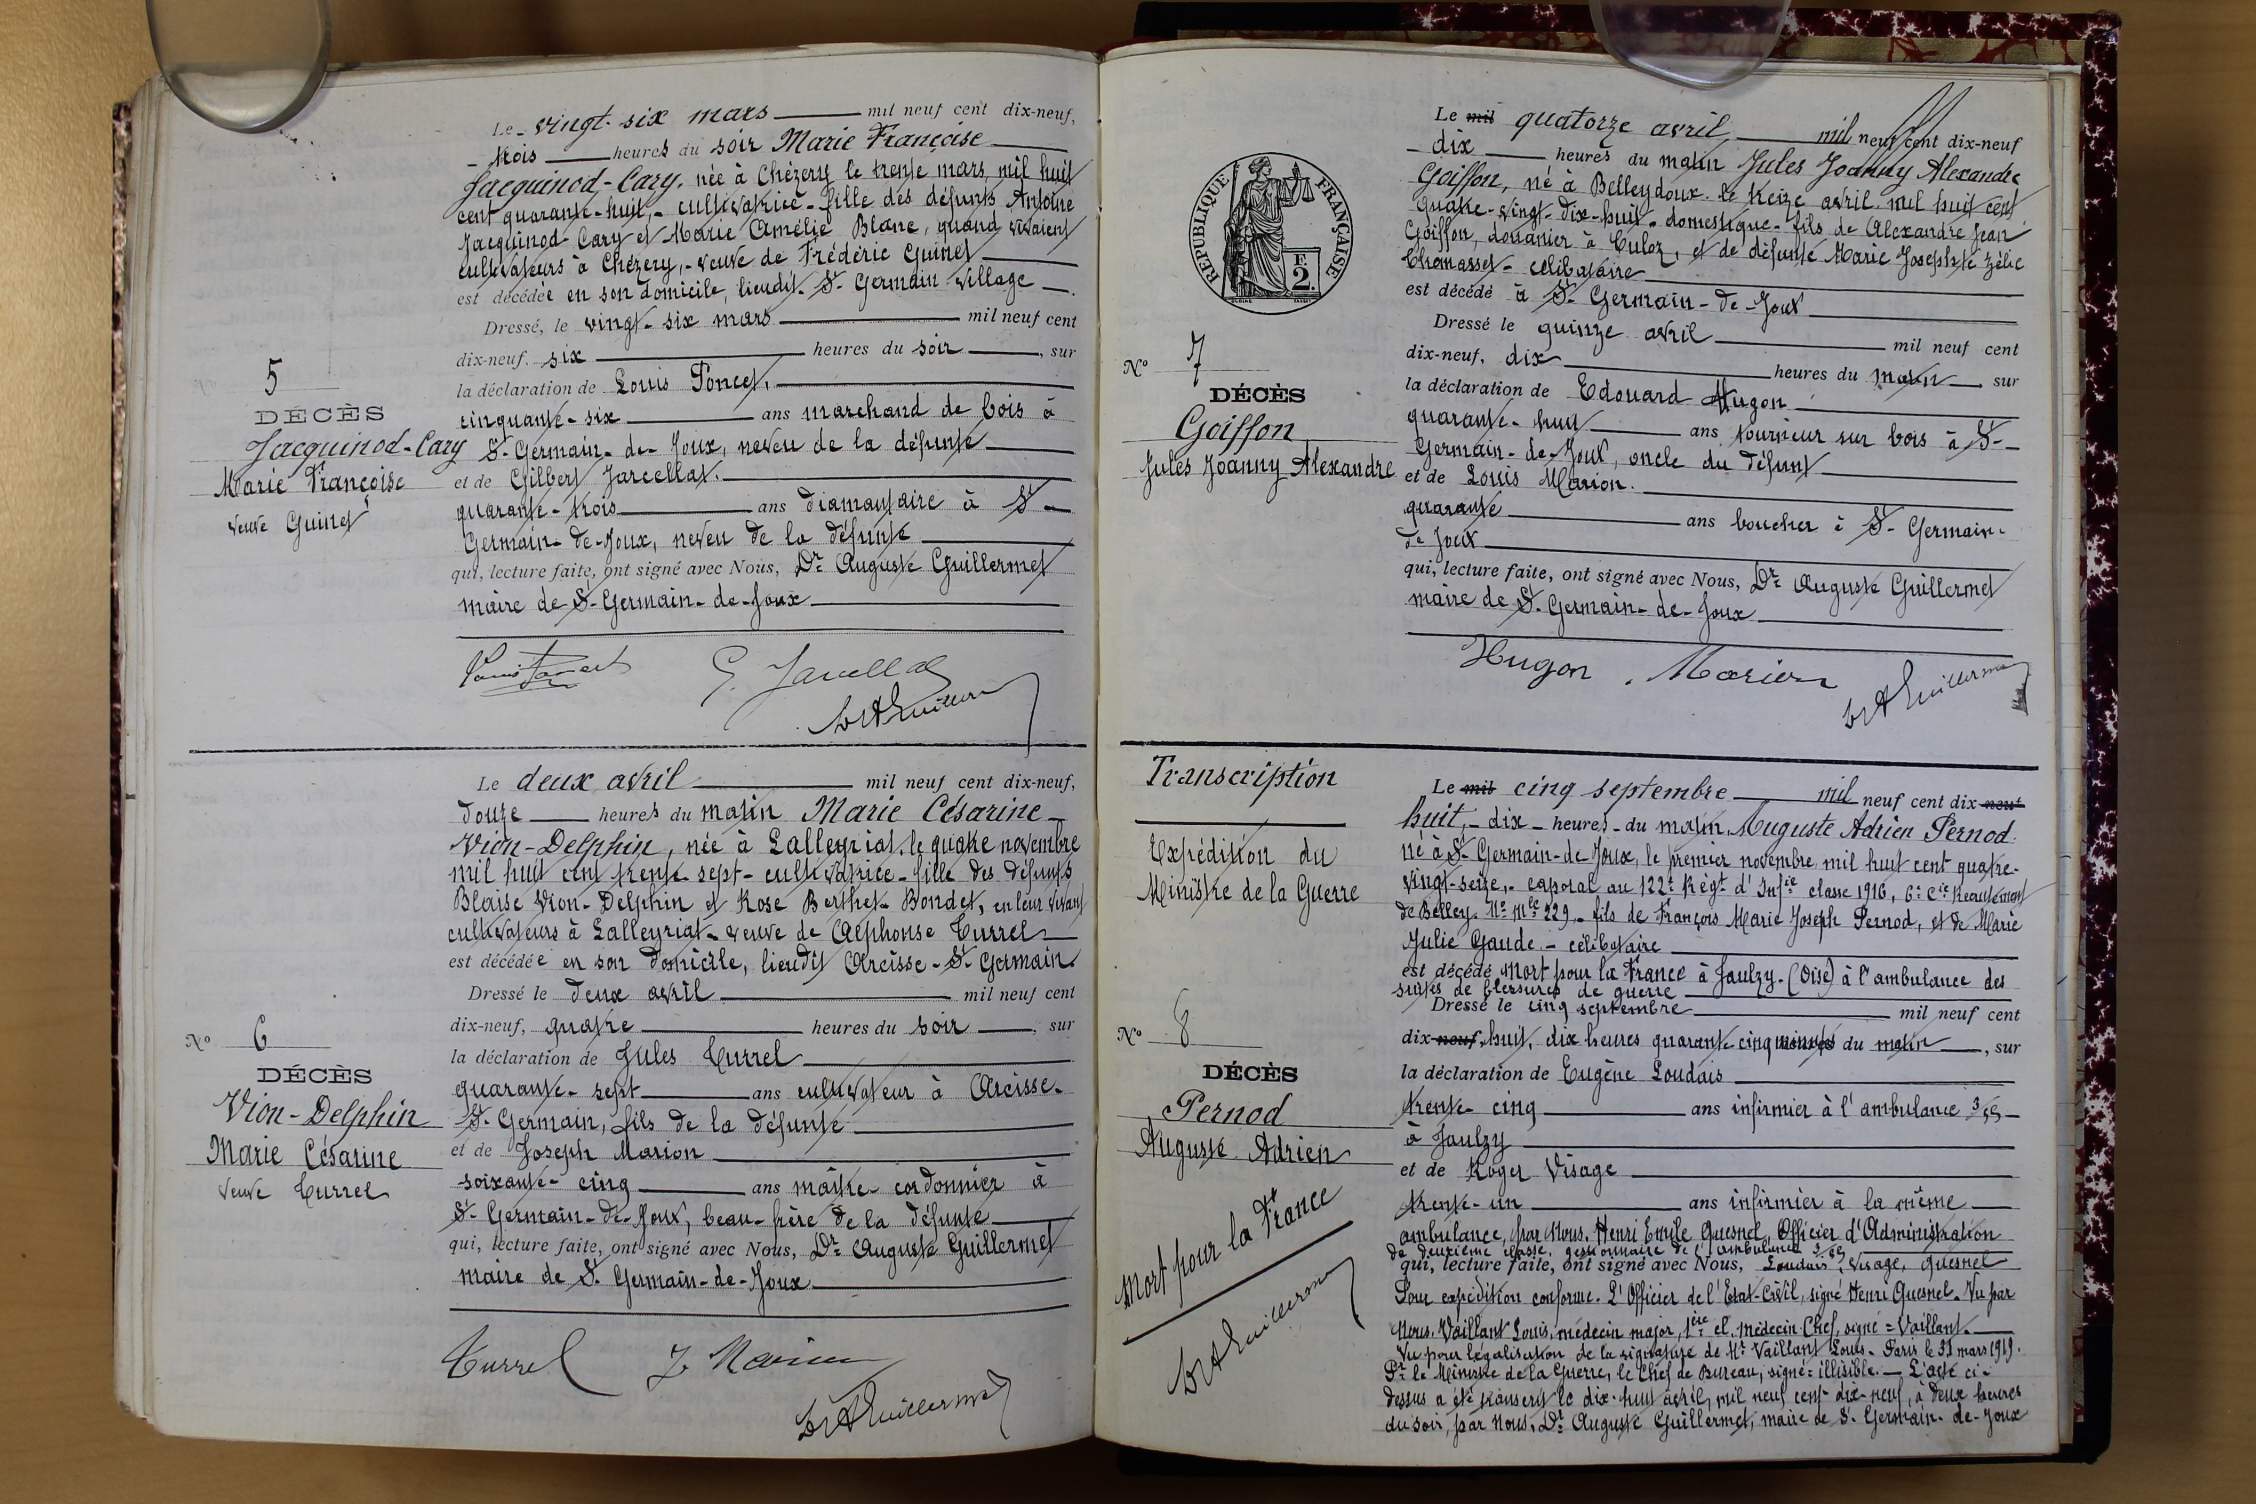 Le vingt-six mars mil neuf cent dix-neuf,
trois heures du soir Marie Françoise
Jacquinod-Cary, née à Chézery le trente mars, mil huit
cent quarante-huit, - cultivatrice - fille des défunts Antoine
Jacquinod-Cary et Marie Amélie Blanc, quand vivaient
cultivateurs à Chézery, - veuve de Frédéric Guinet
est décédée en son domicile, lieudit St Germain village
Dressé, le vingt-six mars mil neuf cent
dix-neuf. six heures du soir, sur
la déclaration de Louis Poncet,
cinquante-six ans marchand de bois à
St-Germain-de-Joux, neveu de la défunte
et de Gilbert Jarcellat.
quarante-trois ans diamantaire à St-
Germain-de-Joux, neveu de la défunte
qui, lecture faite, ont signé avec Nous, Dr Auguste Guillermet
maire de St-Germain-de-Joux
5
DÉCÈS
Jacquinod-Cary
Marie Françoise
veuve Guinet
G. Jarcellat
Dr A Guillermet
Le deux avril mil neuf cent dix-neuf,
douze heures du matin Marie Césarine
Vion-Delphin, née à Lalleyriat, le quatre novembre
mil huit cent trente-sept - cultivatrice - fille des défunts
Blaise Vion-Delphin et Rose Berthet-Bondet, en leur vivant
cultivateurs à Lalleyriat - veuve de Alphonse Turrel
est décédée en son domicile, lieudit Arcisse-St Germain
Dressé le deux avril mil neuf cent
dix-neuf, quatre heures du soir, sur
la déclaration de Jules Turrel
quarante-sept ans cultivateur à Arcisse-
St-Germain, fils de la défunte
et de Joseph Marion
soixante-cinq ans maître-cordonnier à
St-Germain-de-Joux, beau-frère de la défunte
qui, lecture faite, ont signé avec Nous, Dr Auguste Guillermet
maire de St. Germain-de-Joux
No 6
DÉCÈS
Vion-Delphin
Marie Césarine
veuve Turrel
Turrel J. Marion
Dr A Guillermet
RÉPUBLIQUE FRANÇAISE
2 F.
Le mil quatorze avril mil neuf cent dix-neuf
dix heures du matin Jules Joanny Alexandre
Goiffon, né à Belleydoux le treize avril mil huit cent
quatre-vingt-dix-huit - domestique - fils de Alexandre Jean
Goiffon, douanier à Culoz, et de défunte Marie Josephte Zélie
Chomasset - célibataire
est décédé à St-Germain-de-Joux
Dressé le quinze avril mil neuf cent
dix-neuf, dix heures du matin, sur
la déclaration de Edouard Hugon
quarante-huit ans tourneur sur bois à St-
Germain-de-Joux, oncle du défunt
et de Louis Marion.
quarante ans boucher à St-Germain-
de Joux
qui, lecture faite, ont signé avec Nous, Dr Auguste Guillermet
maire de St-Germain-de-Joux
No 7
DÉCÈS
Goiffon
Jules Joanny Alexandre
Hugon. Marion
Dr A Guillermet
Transcription
Expédition du
Ministre de la Guerre
No 8
DÉCÈS
Pernod
Auguste Adrien
Mort pour la France
Dr A Guillermet
Le mil cinq septembre mil neuf cent dix neuf
huit, - dix - heures - du matin Auguste Adrien Pernod
né à St-Germain-de Joux, le premier novembre mil huit cent quatre-
vingt-seize, - caporal au 122e Régt d'Infie classe 1916, 6e Cie Recrutement
de Belley. No Mle 229 - fils de François Marie Joseph Pernod, et de Marie
Julie Gaude - célibataire
est décédé Mort pour la France à Jaulzy - (Oise) à l'ambulance des
suites de blessures de guerre
Dressé le cinq septembre mil neuf cent
dix-neuf, huit, dix heures quarante cinq minutes du matin, sur
la déclaration de Eugène Loudais
trente-cinq ans infirmier à l'ambulance 3/55
à Jaulzy
et de Roger Visage
trente-un ans infirmier à la même
ambulance, par Nous, Henri Emile Quesnel, Officier d'Administration
de deuxième classe, gestionnaire de l'ambulance 3/55
qui, lecture faite, ont signé avec Nous, Loudais, Visage, Quesnel
Pour expédition conforme. L'Officier de l'Etat-Civil, signé Henri Quesnel. Vu par
Nous, Vaillant Louis, médecin major, 1ère cl. Médecin Chef, signé = Vaillant.
Vu pour légalisation de la signature de Mr Vaillant Louis - Paris le 31 mars 1919.
Pr le Ministre de la Guerre, le Chef de Bureau, signé = illisible. - L'acte ci-
dessus a été transcrit le dix-huit avril, mil neuf cent dix-neuf, à deux heures
du soir, par Nous, Dr Auguste Guillermet, maire de St. Germain-de-Joux